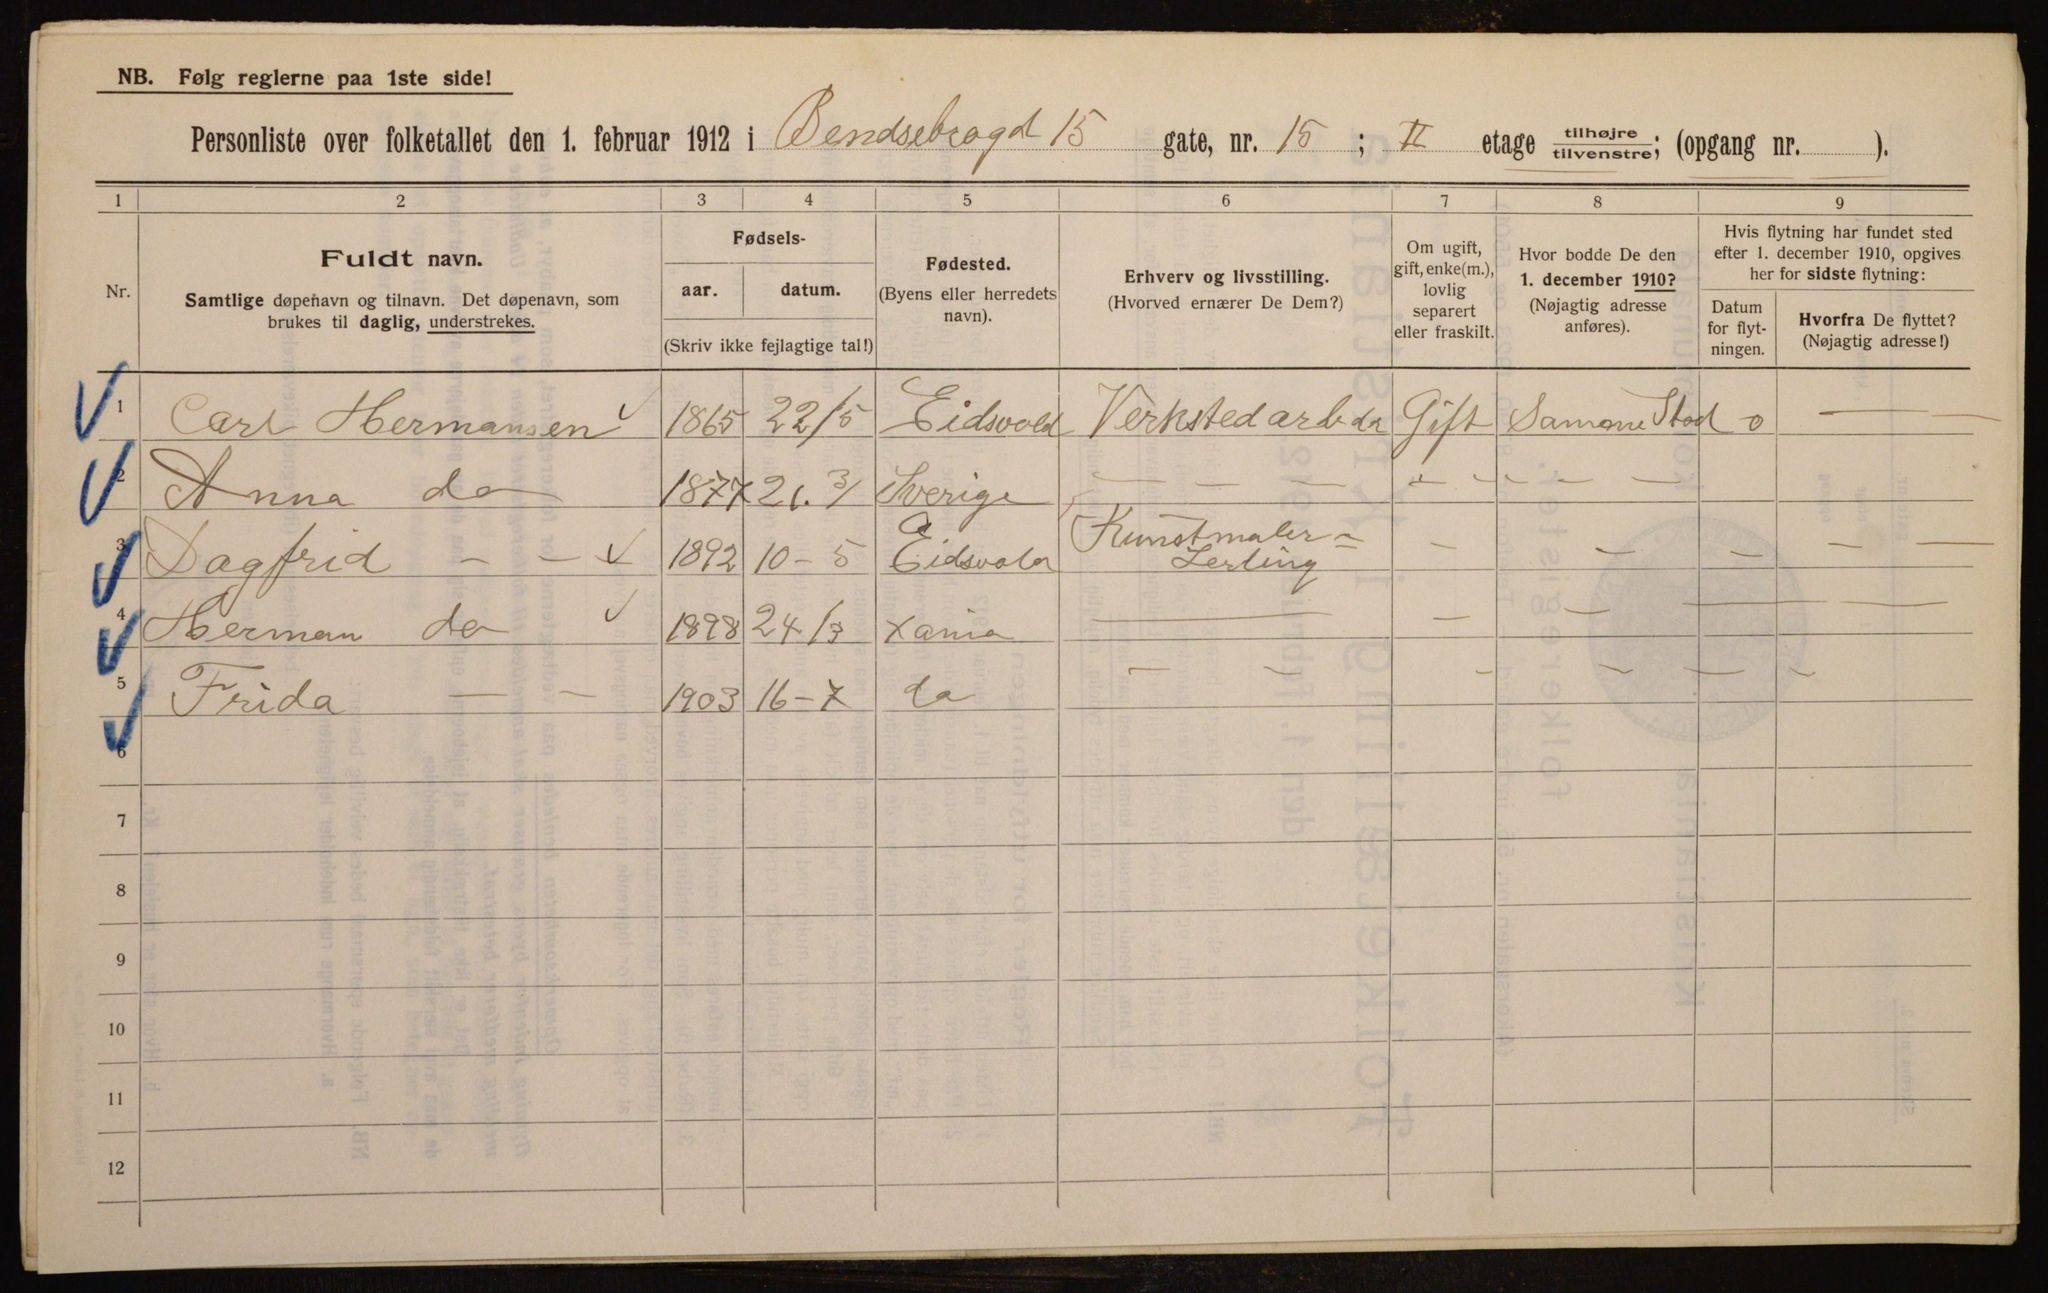 NB. Følg reglerne paa 1ste side!
Personliste over folketallet den 1. februar 1912 i Bendsebrogd 15 gate, nr. 15; II etage tilhøjre tilvenstre; (opgang nr. ).
1 2 3 4 5 6 7 8 9
Nr.
Fuldt navn.
Samtlige døpenavn og tilnavn. Det døpenavn, som
brukes til daglig, understrekes.
Fødsels-
aar. datum.
(Skriv ikke fejlagtige tal!)
Fødested.
(Byens eller herredets
navn).
Erhverv og livsstilling.
(Hvorved ernærer De Dem?)
Om ugift,
gift, enke(m.),
lovlig
separert
eller fraskilt.
Hvor bodde De den
1. december 1910?
(Nøjagtig adresse
anføres).
Hvis flytning har fundet sted
efter 1. december 1910, opgives
her for sidste flytning:
Datum
for flyt-
ningen.
Hvorfra De flyttet?
(Nøjagtig adresse!)
1 Carl Hermansen 1865 22/5 Eidsvold Verkstedarb Gift Samme Sted o — —
2 Anna do 1877 21. 3/ Sverige — — — — — — —
3 Dagfrid — — 1892 10 – 5 Eidsvold Kunstmaler =
Lerling — — — — — —
4 Herman do 1898 24/3 Xania — — — — — —
5 Frida — — 1903 16 – 7 do — — — — — —
6
7
8
9
10
11
12